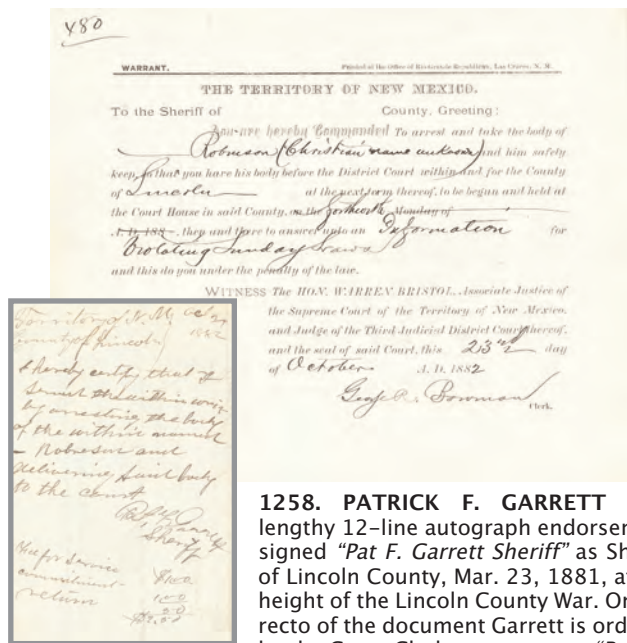 480
WARRANT. Printed at the Office of Rio Grande Republican, Las Cruces, N. M.
THE TERRITORY OF NEW MEXICO.
To the Sheriff of County, Greeting:
You are hereby Commanded To arrest and take the body of
Robinson (Christian name unknown) and him safely
keep, so that you have his body before the District Court within and for the County
of Lincoln at the next term thereof, to be began and held at
the Court House in said County, on the forthwith Monday of
A. D. 188 , then and there to answer unto an Information for
Violating Sunday Laws
and this do you under the penalty of the law.
WITNESS The HON. WARREN BRISTOL, Associate Justice of
the Supreme Court of the Territory of New Mexico,
and Judge of the Third Judicial District Court thereof,
and the seal of said Court, this 23rd day
of October A. D. 1882
Geo. R. Bowman
Clerk.
Territory of N. M. Oct 24
County of Lincoln 1882
I hereby certify that I
served the within writ
by arresting the body
of the within named
– Robinson and
delivering said body
to the court
Sheriff
Fee for service
commitment
return
$2.50
1258. PATRICK F. GARRETT
lengthy 12-line autograph endorsem
signed "Pat F. Garrett Sheriff" as Sh
of Lincoln County, Mar. 23, 1881, a
height of the Lincoln County War. On
recto of the document Garrett is ord